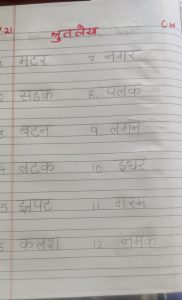 21 श्रुतलेख C.W
मटर 7 नगर
2 सडक 8 पलक
3 बटन 9 लगन
4 लटक 10 इधर
5 झपट 11 गरम
6 कलश 12 नमक